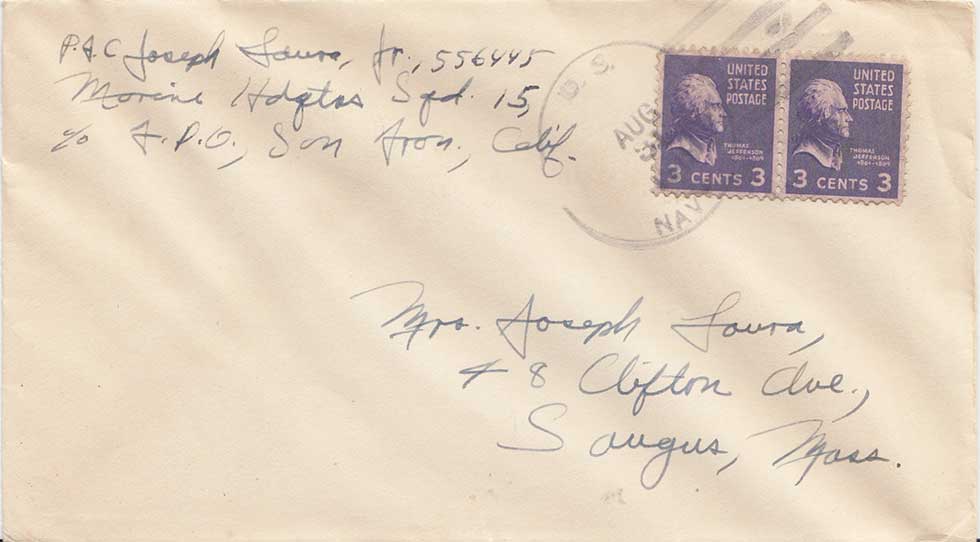 P.F.C. Joseph Laura, Jr., 556445
Marine Hdqtrs Sqd. 15,
c/o F.P.O., San Fran., Calif.
U. S.
AUG
NAV
UNITED
STATES
POSTAGE
THOMAS
JEFFERSON
1801-1809
3 CENTS 3
UNITED
STATES
POSTAGE
THOMAS
JEFFERSON
1801-1809
3 CENTS 3
Mrs. Joseph Laura,
48 Clifton Ave.,
Saugus, Mass.